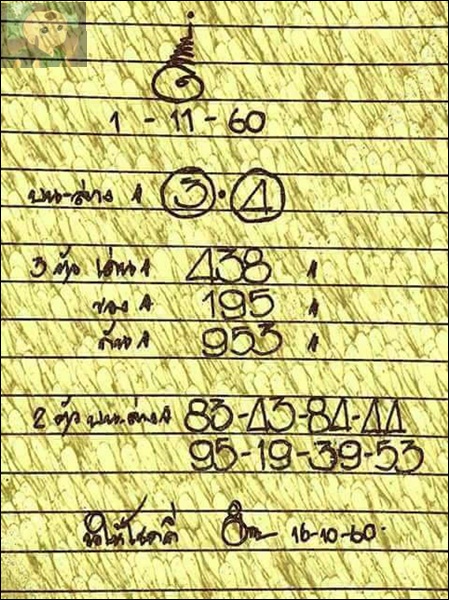 1 - 11 - 60
บน-ล่าง 3 · 4
3 ตัว เด่น 438
รอง 195
953
2 ตัว บน-ล่าง 83-43-84-44
95-19-39-53
ให้โชคดี 16-10-60.